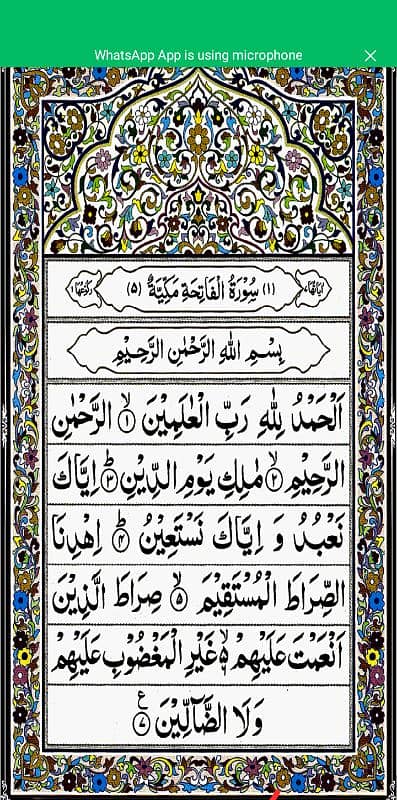 WhatsApp App is using microphone
اٰیَاتُهَا ٧ (١) سُوْرَةُ الْفَاتِحَةِ مَكِّيَّةٌ (٥) رُكُوْعُهَا ١
بِسْمِ اللّٰهِ الرَّحْمٰنِ الرَّحِيْمِ
اَلْحَمْدُ لِلّٰهِ رَبِّ الْعٰلَمِيْنَ ۙ﴿١﴾ الرَّحْمٰنِ
الرَّحِيْمِ ۙ﴿٢﴾ مٰلِكِ يَوْمِ الدِّيْنِ ؕ﴿٣﴾ اِيَّاكَ
نَعْبُدُ وَ اِيَّاكَ نَسْتَعِيْنُ ؕ﴿٤﴾ اِهْدِنَا
الصِّرَاطَ الْمُسْتَقِيْمَ ۙ﴿٥﴾ صِرَاطَ الَّذِيْنَ
اَنْعَمْتَ عَلَيْهِمْ ۙ۬﴿٦﴾ غَيْرِ الْمَغْضُوْبِ عَلَيْهِمْ
وَلَا الضَّآلِّيْنَ ﴿٧﴾ ع